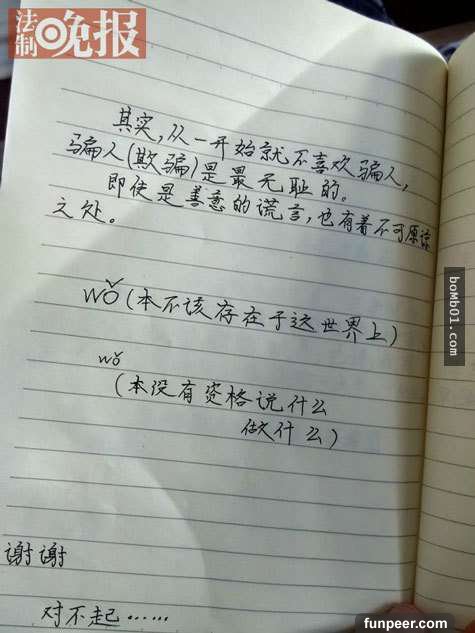 法制晚报
其实,从一开始就不喜欢骗人,
骗人(欺骗)是最无耻的。
即使是善意的谎言,也有着不可原谅
之处。
wǒ(本不该存在于这世界上)
wǒ
(本没有资格说什么
做什么)
谢谢
对不起……
boMb01.com
funpeer.com